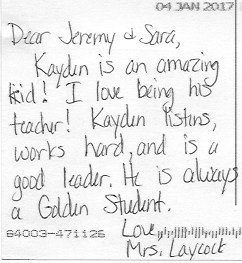 04 JAN 2017
Dear Jeremy & Sara,
Kayden is an amazing
kid! I love being his
teacher! Kayden listens,
works hard, and is a
good leader. He is always
a Golden Student.
Love,
84003-471126
Mrs. Laycock